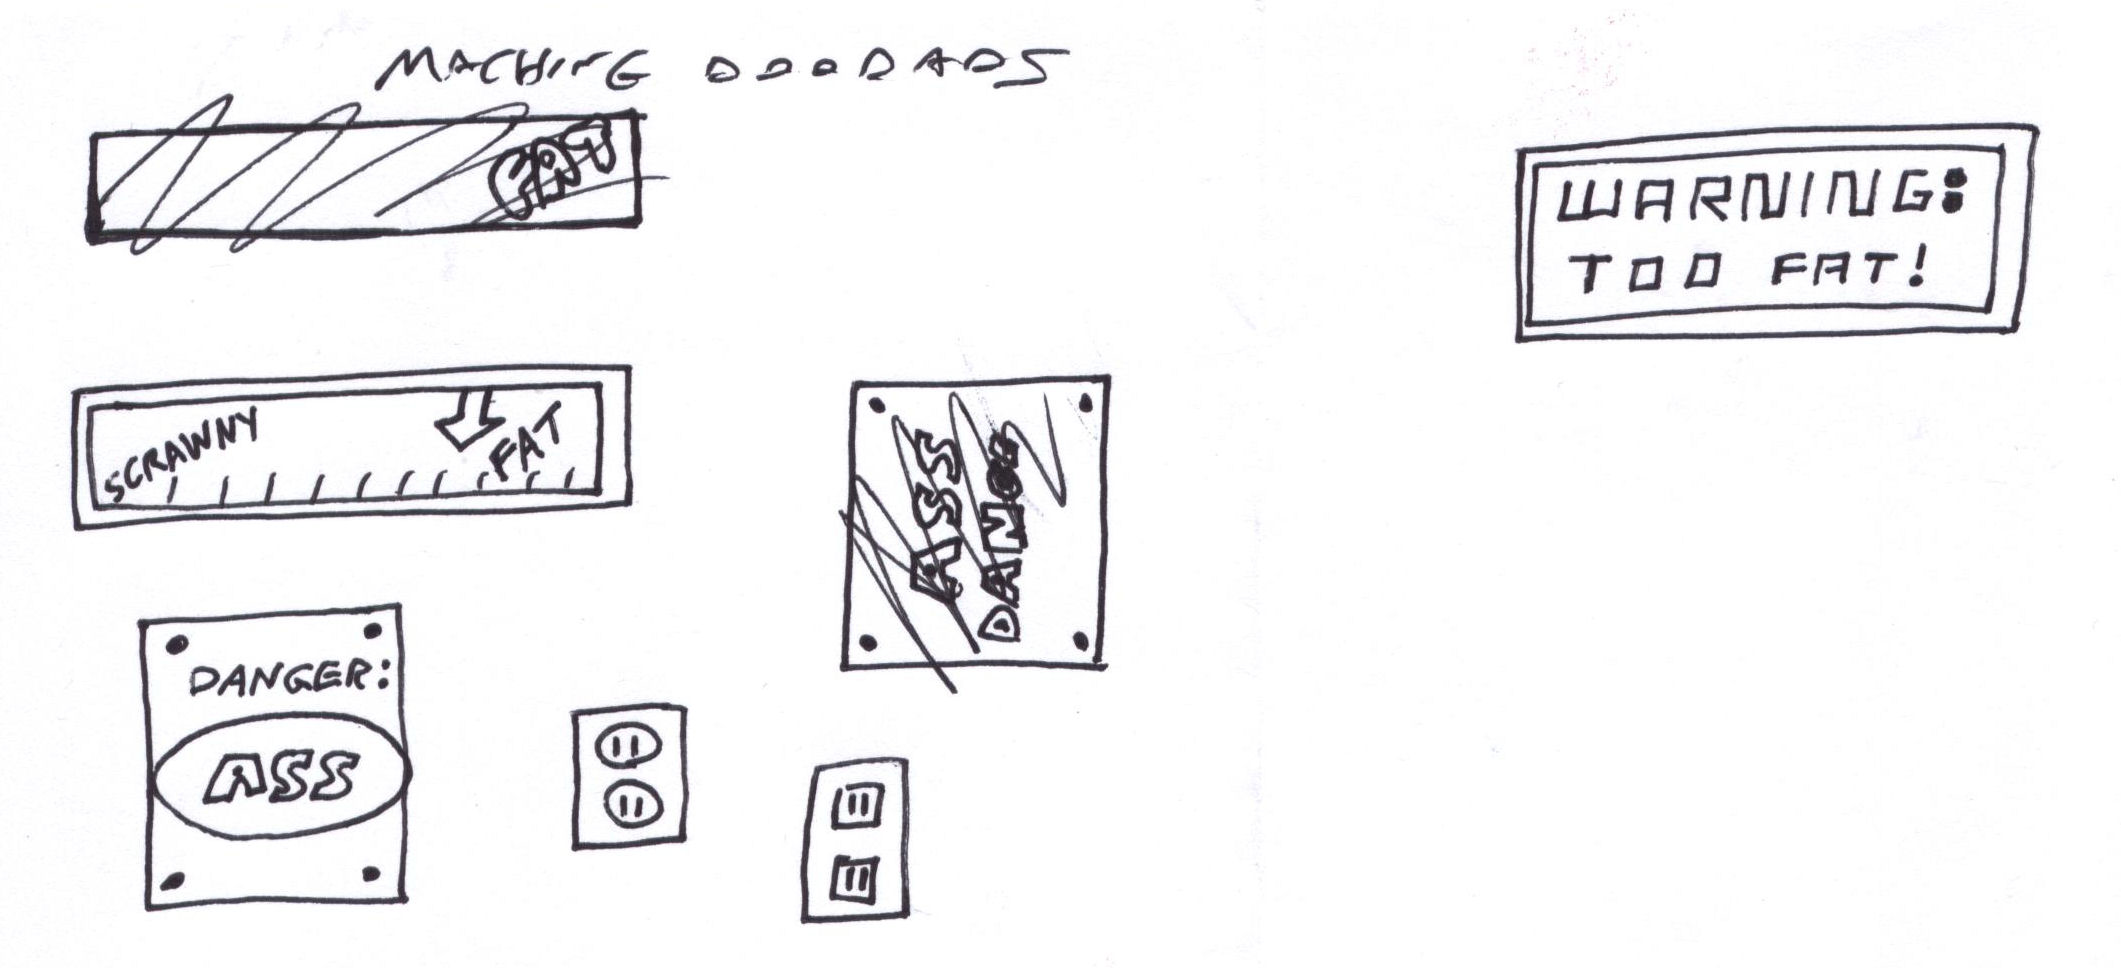 MACHINE DOODADS
FAT
WARNING:
TOO FAT!
SCRAWNY
FAT
ASS
DANG
DANGER:
ASS